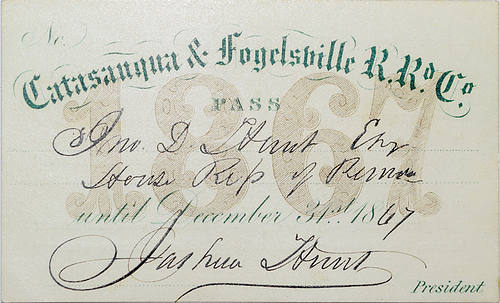 No.
Catasauqua & Fogelsville R. Rd. Co.
1867
PASS
Jno. D. Hunt Esq
House Rep of Penna
until December 31st. 1867
Joshua Hunt
President